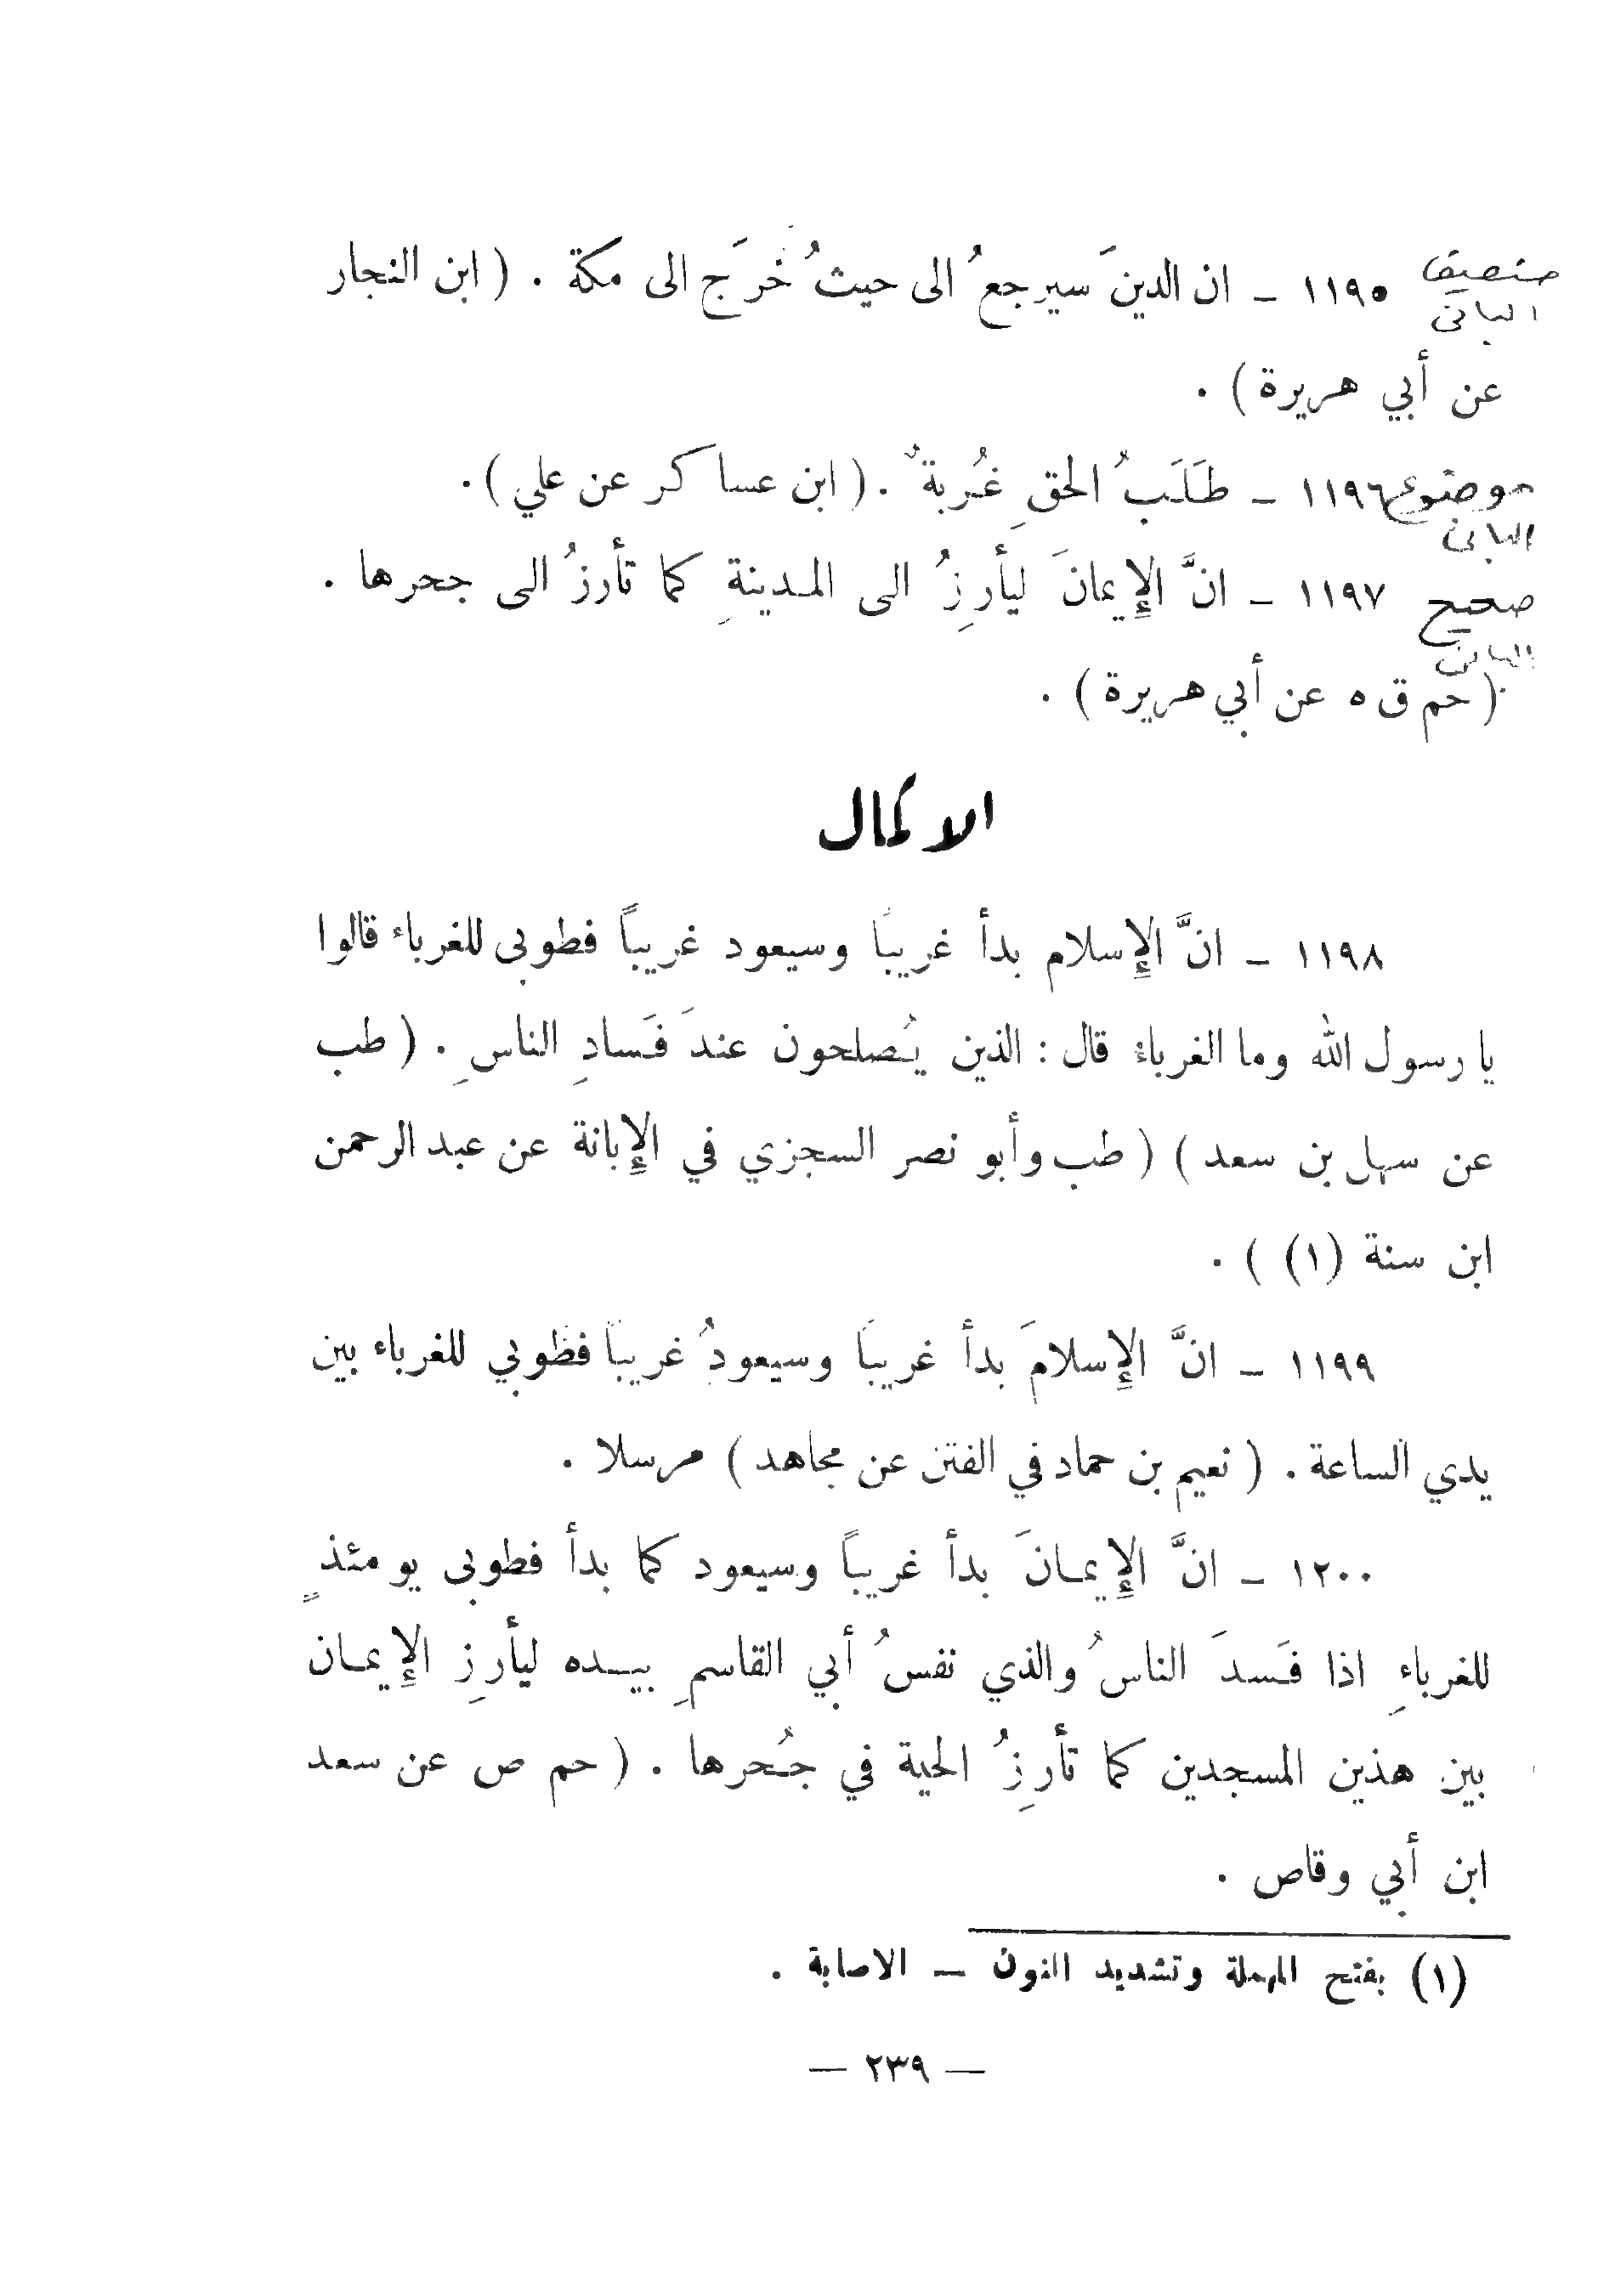 ضعيف ١١٩٥ – ان الدينَ سيرجعُ الى حيثُ خرَج الى مكة . ( ابن النجار
الباني
عن أبي هريرة ) .
موضوع ١١٩٦ – طَلَبُ الحقِ غُربةٌ . ( ابن عساكر عن علي ) .
الباني
صحيح ١١٩٧ – انَّ الإِيمانَ ليأرِزُ الى المدينةِ كما تأرزُ الى جحرها .
الباني
( حم ق ه عن أبي هريرة ) .
الاكمال
١١٩٨ – انَّ الإِسلام بدأ غريباً وسيعود غريباً فطوبى للغرباء قالوا
يا رسول الله وما الغرباء قال : الذين يُصلحون عندَ فَسادِ الناسِ . ( طب
عن سهل بن سعد ) ( طب وأبو نصر السجزي في الإِبانة عن عبد الرحمن
ابن سنة (١) ) .
١١٩٩ – انَّ الإِسلامَ بدأ غريباً وسيعودُ غريباً فطوبي للغرباء بين
يدي الساعة . ( نعيم بن حماد في الفتن عن مجاهد ) مرسلا .
١٢٠٠ – انَّ الإِيمانَ بدأ غريباً وسيعود كما بدأ فطوبى يومئذٍ
للغرباءِ اذا فَسدَ الناسُ والذي نفسُ أبي القاسمِ بيده ليأرِز الإِيمان
بين هذين المسجدين كما تأرِزُ الحية في جُحرها . ( حم ص عن سعد
ابن أبي وقاص .
(١) بفتح المهملة وتشديد النون – الاصابة .
— ٢٣٩ —